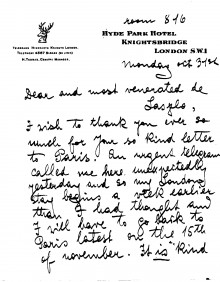 room 816
HYDE PARK HOTEL
KNIGHTSBRIDGE
LONDON S.W.1
Monday oct 31st
Dear and most venerated de
Laszlo,
I wish to thank you ever so
much for your so kind letter
to Paris. An urgent telegram
called me here unexpectedly
yesterday and so my London
stay begins a week earlier
than I had thought and
I will have to go back to
Paris latest on the 15th
of november. It is kind